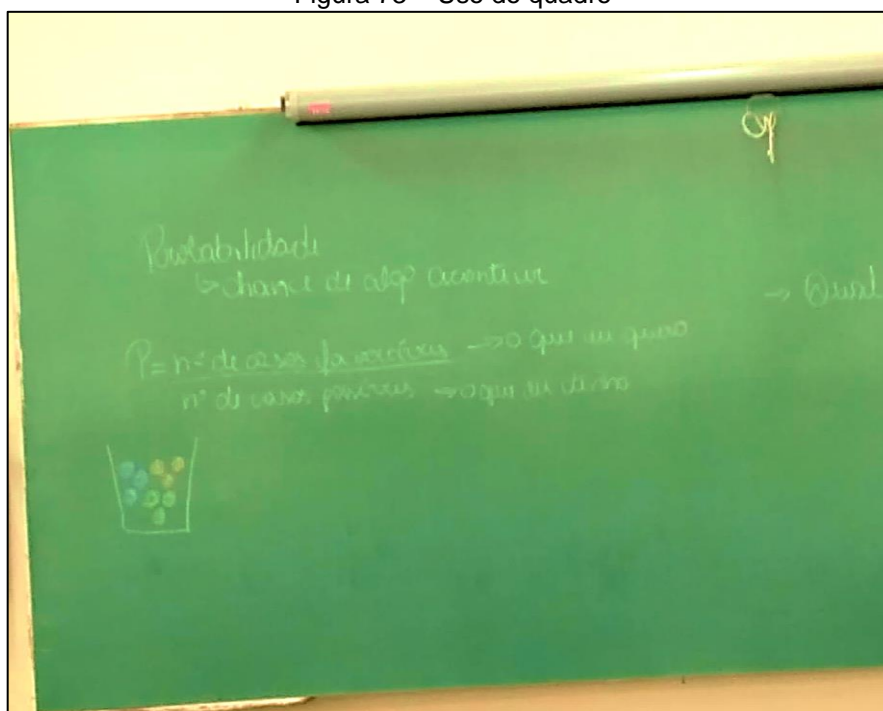 Figura 78 – Uso do quadro
Probabilidade
↳ chance de algo acontecer
→ Qual
P = nº de casos favoráveis → o que eu quero
nº de casos possíveis → o que eu tenho